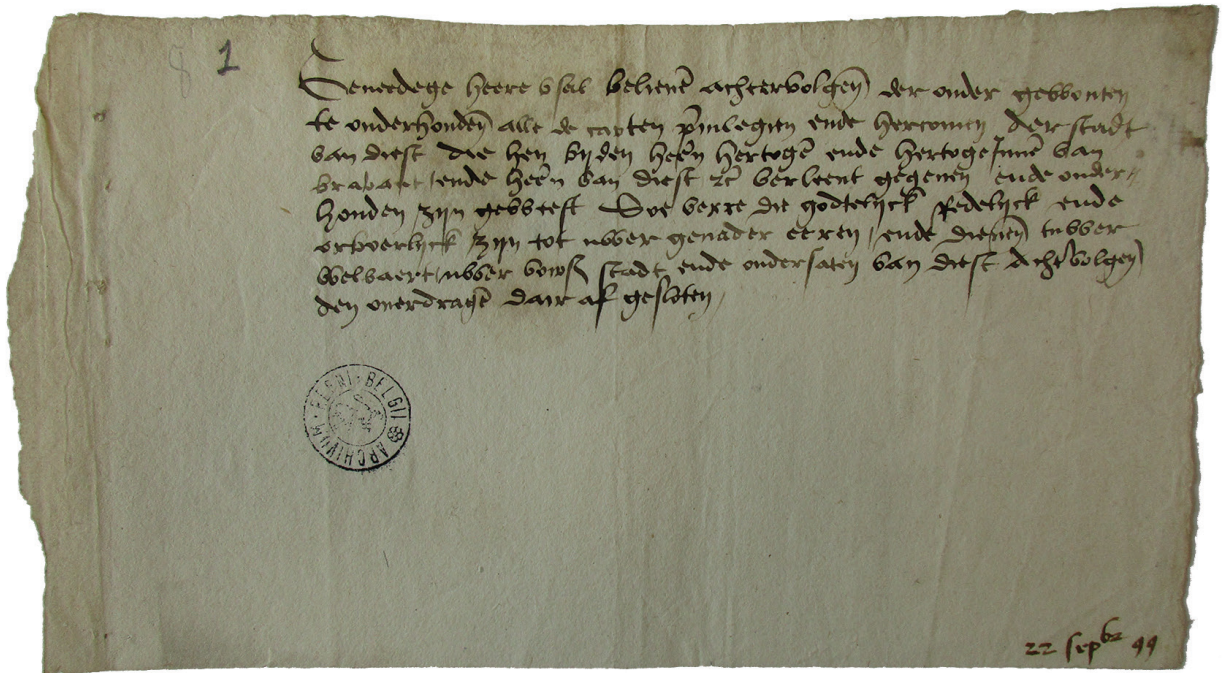 8 1
Geneedege heere v sal belieuen achtervolgen der ouder gewoonten
te onderhouden alle de carten privilegien ende hercomen der stadt
van diest die hen byden heren hertogen ende hertoginnen van
brabant ende heren van diest etc verleent gegeuen ende onder
houden zyn geweest Soe verre die godtelyck Redelyck ende
orboerlyck zyn tot uwer genader eeren ende dienen tuwer
welvaert uwer stadt ende ondersaten van diest achtervolgen
den ouerdragen dair af gesloten
ARCHIVUM · REGNI · BELGII
22 sepbr 99